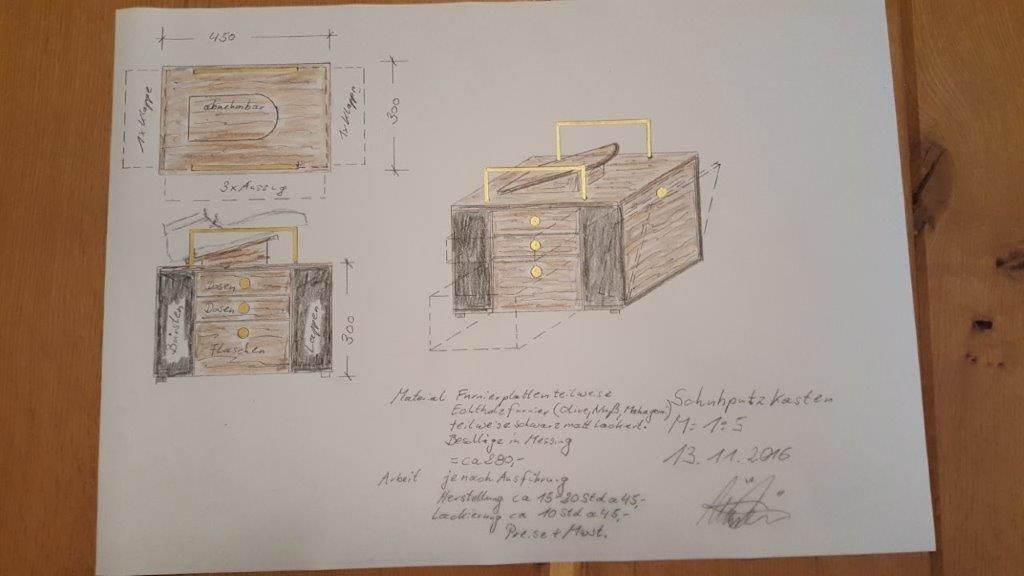 450
1x Klappe
abnehmbar
1x Klappen
300
3x Auszug
Dosen
Dosen
Flaschen
Bürsten
Lappen
300
Material Furnierplatten teilweise
Echtholzfurnier (Olive, Nuß, Mahagoni)
teilweise schwarz matt lackiert.
Beschläge in Messing
= ca 280,-
Arbeit je nach Ausführung
Herstellung ca 15-20 Std a 45,-
Lackierung ca 10 Std a 45,-
Preise + Mwst.
Schuhputzkasten
M = 1:5
13.11.2016